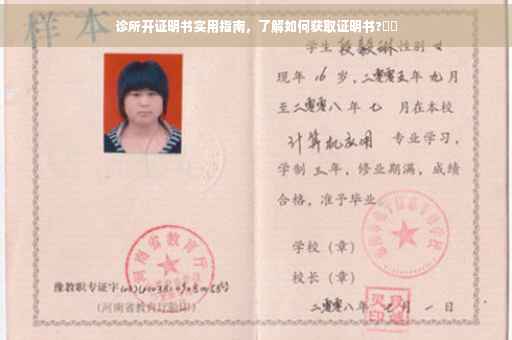 诊所开证明书实用指南，了解如何获取证明书?
样本
河南省教育厅
豫教职专证字
(河南省教育厅验印)
学生 段毅琳 性别 女
现年 16 岁，二零零五年 九 月
至二零零八年 七 月在本校
计算机应用 专业学习，
学制 三 年，修业期满，成绩
合格，准予毕业。
学校（章）
校长（章）
二零零八年 七 月 一 日